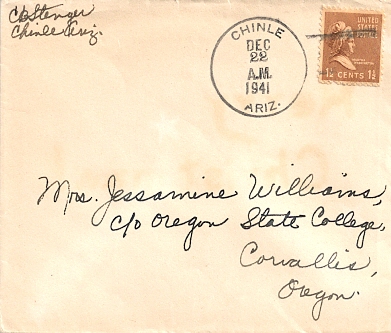 CB Stenger
Chinle Ariz.
CHINLE
DEC
22
A.M.
1941
ARIZ.
UNITED STATES
1½ CENTS 1½
Mrs. Jessamine Williams,
c/o Oregon State College,
Corvallis,
Oregon.